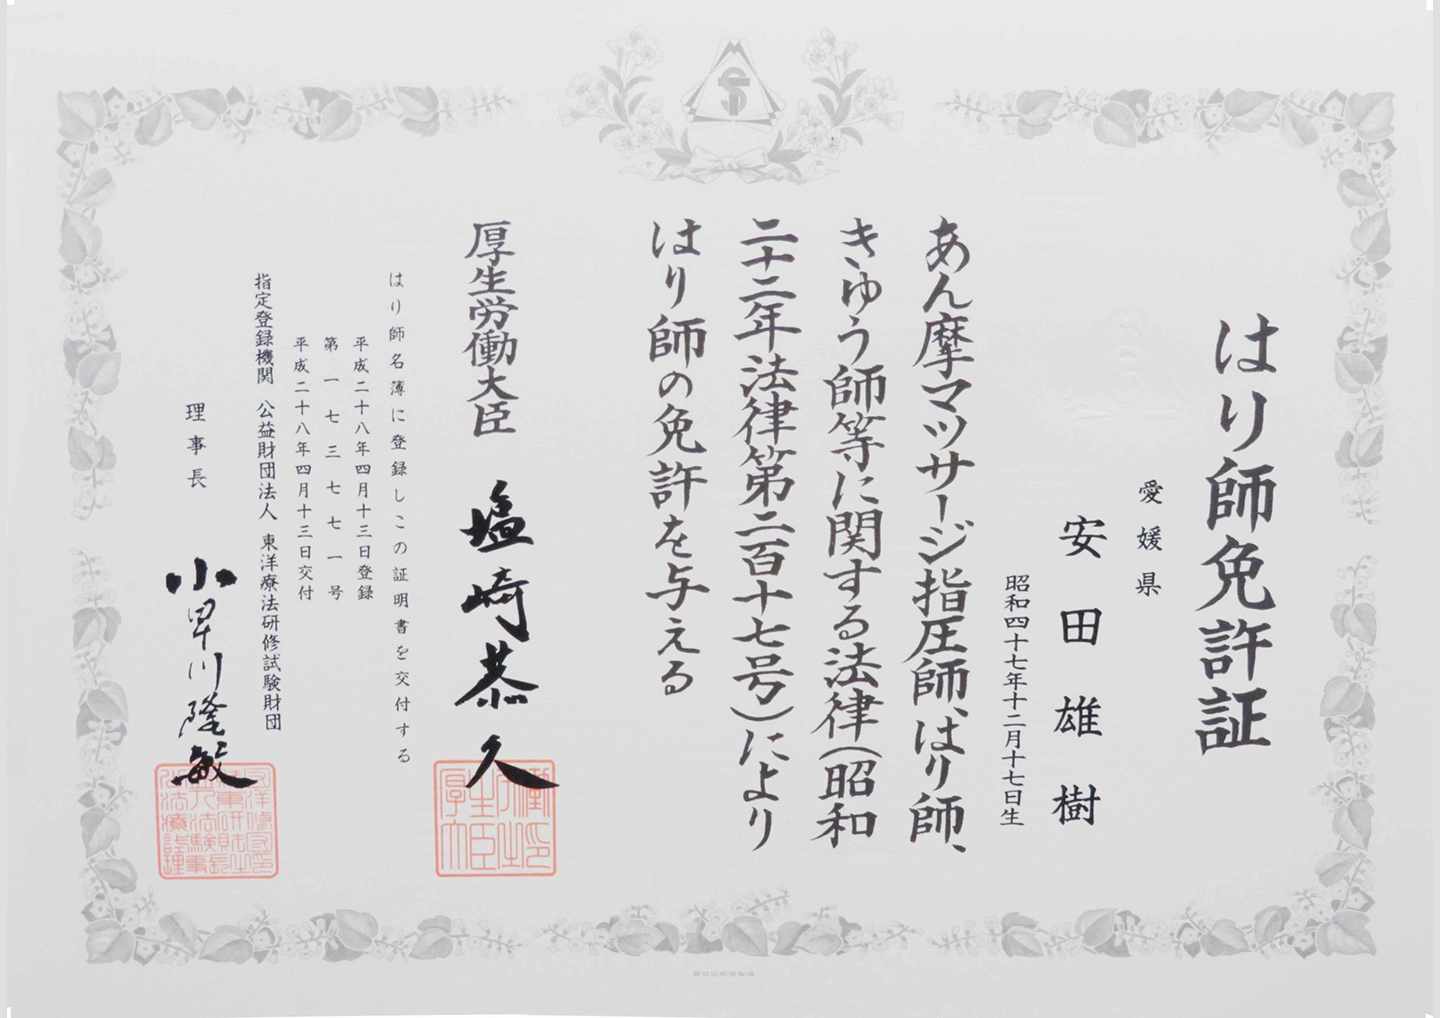 はり師免許証
愛媛県
安田雄樹
昭和四十七年十二月十七日生
あん摩マッサージ指圧師、はり師、
きゅう師等に関する法律(昭和
二十二年法律第二百十七号)により
はり師の免許を与える
厚生労働大臣 塩崎恭久
はり師名簿に登録しこの証明書を交付する
平成二十八年四月十三日登録
第一七三七七一号
平成二十八年四月十三日交付
指定登録機関 公益財団法人 東洋療法研修試験財団
理事長 小早川隆敏